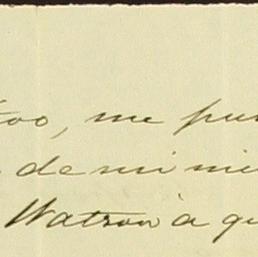 too, me pu
de mi mi
Watson à qu